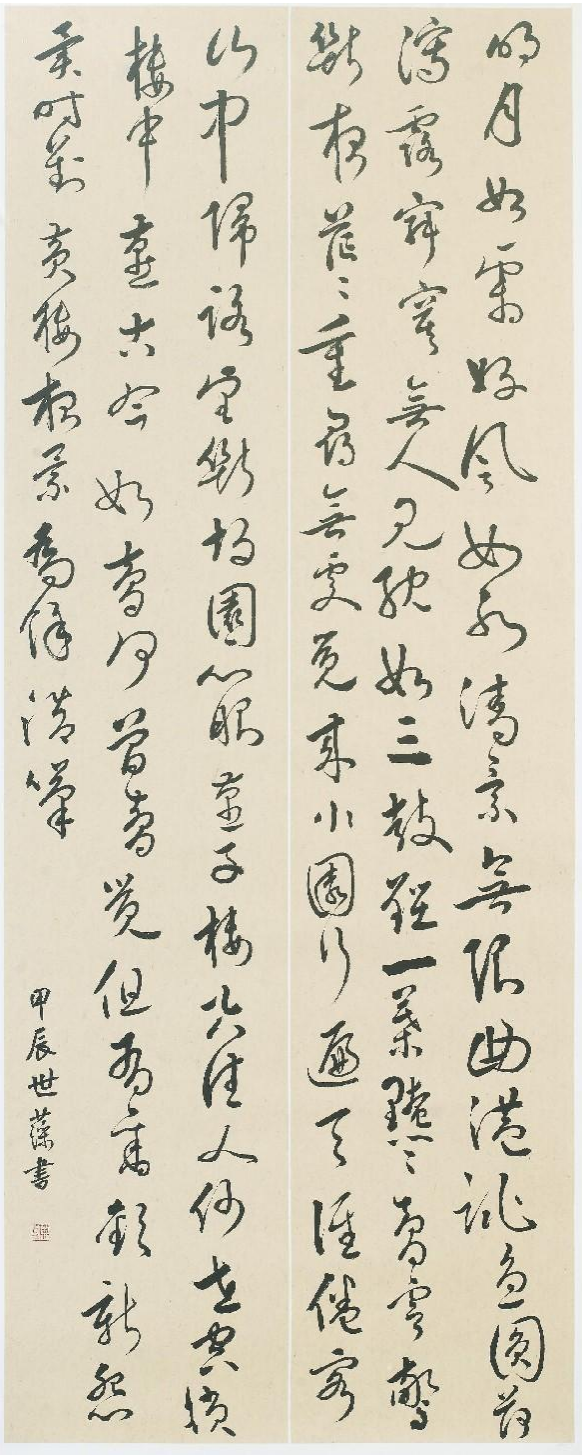 明月如霜好風如水清景無限曲港跳魚圓荷
瀉露寂寞無人見紞如三鼓鏗一葉黯々夢雲驚
斷夜茫々重尋無處覺來小園行遍天涯倦客
山中歸路望斷故園心眼燕子樓空佳人何在空鎖
樓中燕古今如夢何曾夢覺但有舊歡新怨
異時對黃樓夜景為余浩嘆
甲辰世藻書